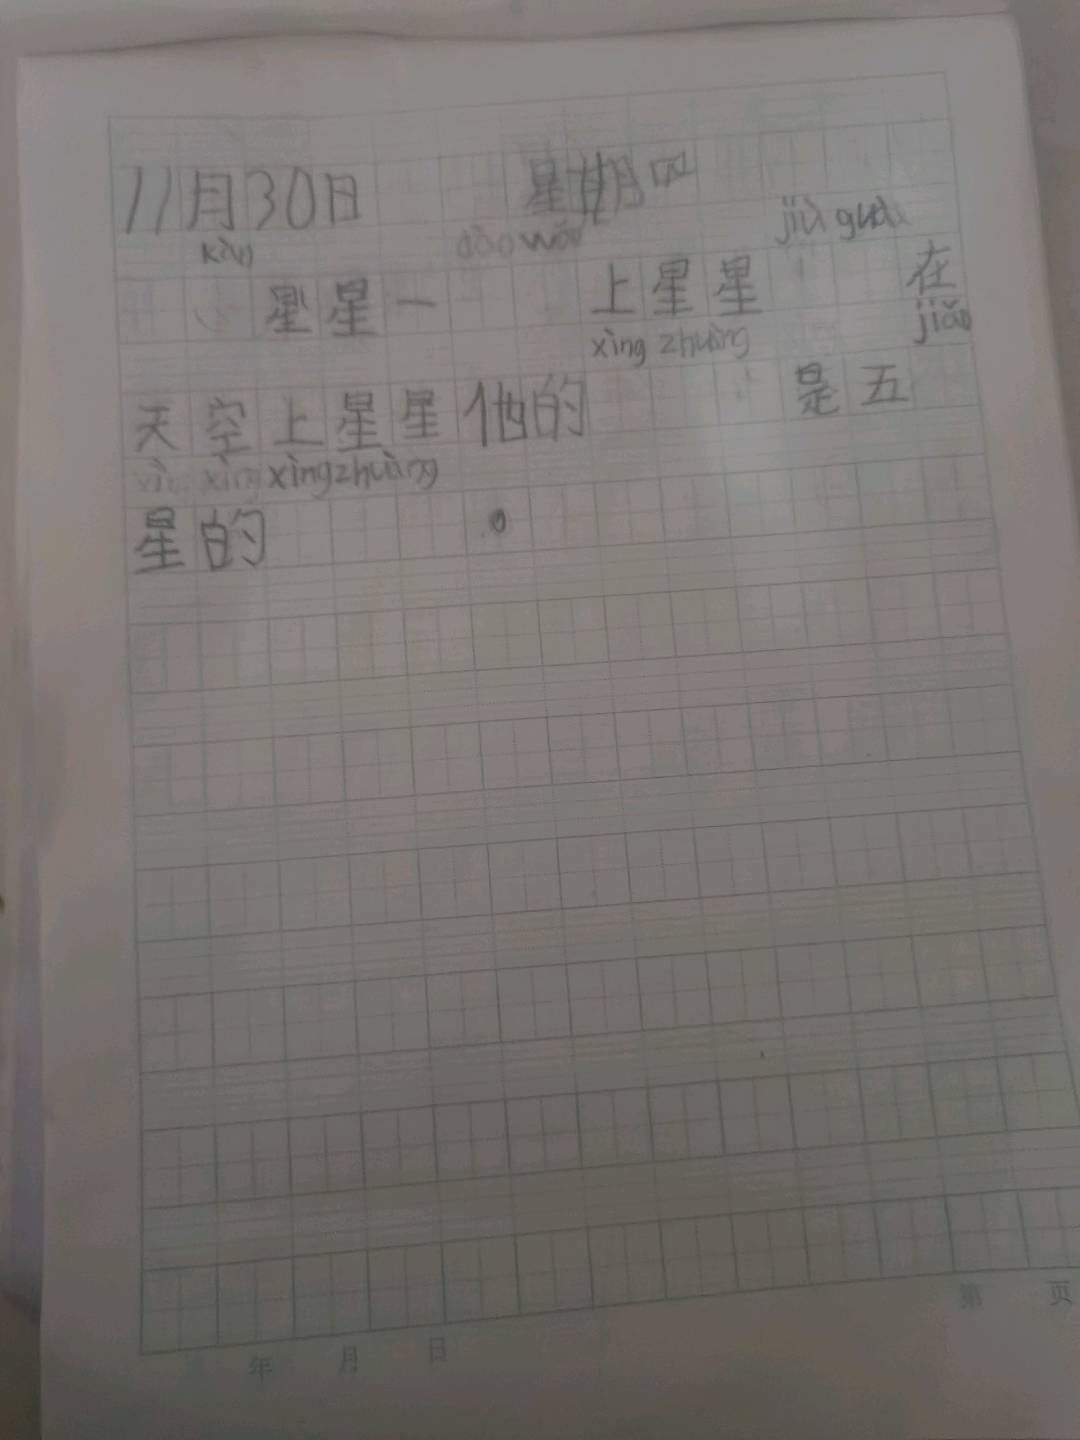 11月30日 星期四
kàn dào wǎn jiù guà
星星一 上星星 在
xìng zhuàng jiǎo
天空上星星他的 是五
xìng xìngzhuàng
星的 。
年 月 日 第 页